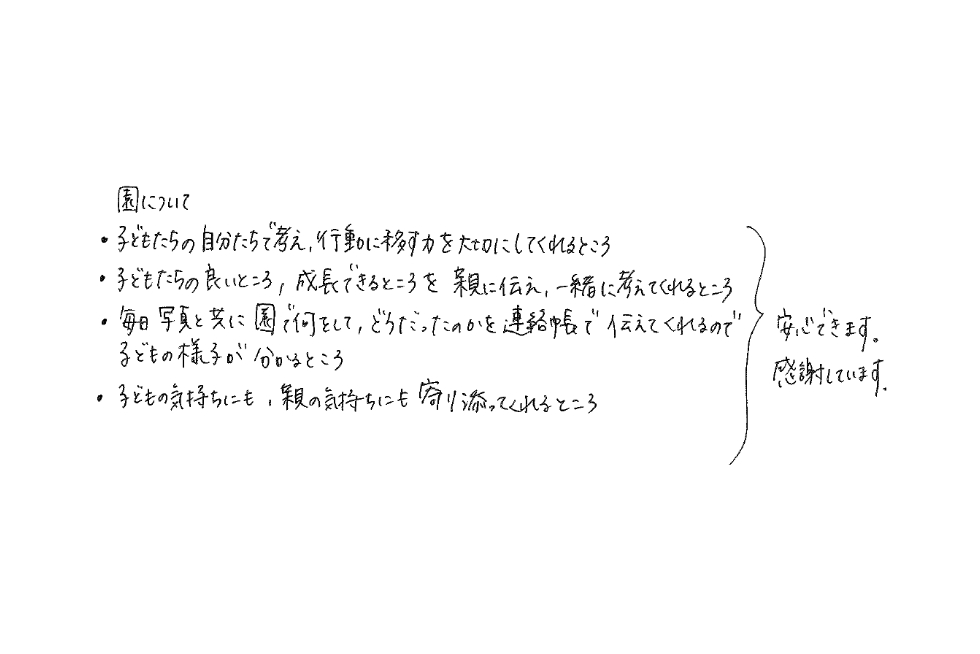 園について
・子どもたちの自分たちで考え、行動に移す力を大切にしてくれるところ
・子どもたちの良いところ、成長できるところを親に伝え、一緒に考えてくれるところ
・毎日写真と共に園で何をして、どうだったのかを連絡帳で伝えてくれるので
子どもの様子が分かるところ
・子どもの気持ちにも、親の気持ちにも寄り添ってくれるところ
安心できます。
感謝しています。